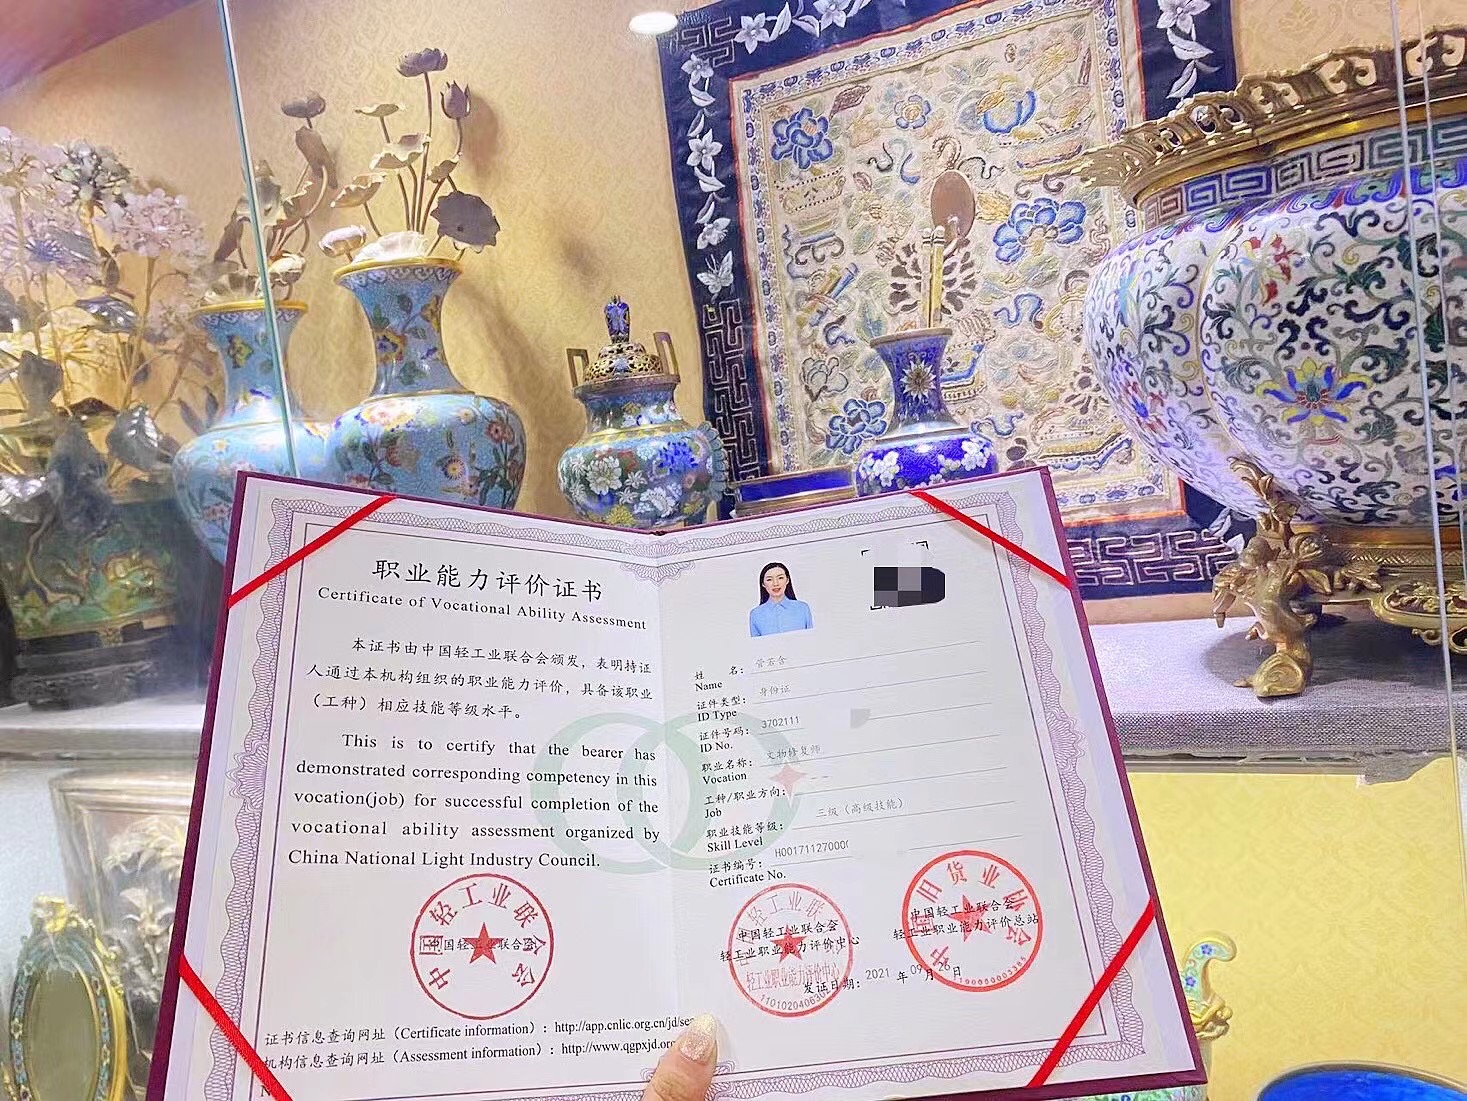 职业能力评价证书
Certificate of Vocational Ability Assessment
本证书由中国轻工业联合会颁发，表明持证
人通过本机构组织的职业能力评价，具备该职业
（工种）相应技能等级水平。
This is to certify that the bearer has
demonstrated corresponding competency in this
vocation(job) for successful completion of the
vocational ability assessment organized by
China National Light Industry Council.
中国轻工业联合会
中国轻工业联合会
证书信息查询网址（Certificate information）：http://app.cnlic.org.cn/jd/sea
机构信息查询网址（Assessment information）：http://www.qgpxjd.org
N
姓 名：
Name
证件类型：身份证
ID Type
证件号码：3702111
ID No.
职业名称：文物修复师
Vocation
工种/职业方向：
Job
职业技能等级：三级（高级技能）
Skill Level
证书编号：H00171127000
Certificate No.
中国轻工业联合会
轻工业职业能力评价中心
轻工业职业能力评价中心
中国旧货业协会
中国轻工业联合会
轻工业职业能力评价总站
发证日期：2021 年 09 月 26 日